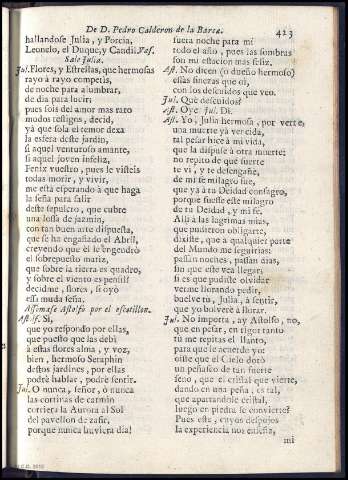 De D. Pedro Calderon de la Barca.
423
hallandose Julia, y Porcia,
Leonelo, el Duque, y Candil. Vas.
Sale Julia.
Jul. Flores, y Estrellas, que hermosas
rayo à rayo competis,
de noche para alumbrar,
de dia para lucir;
pues sois del amor mas raro
mudos testigos, decid,
yà que sola el temor dexa
la esfera deste jardin,
si aquel venturoso amante,
si aquel joven infeliz,
Fenix vuestro, pues le visteis
todar morir, y vivir,
me està esperando à que haga
la seña para salir
deste sepulcro, que cubre
una losa de jazmin,
con tan buen arte dispuesta,
que se ha engañado el Abril,
creyendo que èl le engendrò
el sobrepuesto matiz,
que sobre la tierra es quadro,
y sobre el viento es pensil?
decidme, flores, si oyò
essa muda seña.
Assomase Astolfo por el escotillon.
Ast. Si,
que yo respondo por ellas,
que puesto que las debì
à estas flores alma, y voz,
bien, hermoso Seraphin
destos jardines, por ellas
podrè hablar, podrè sentir.
Jul. O nunca, señor, ò nunca
las cortinas de carmin
corriera la Aurora al Sol
del pavellon de zafir,
porque nunca huviera dia!
fuera noche para mi
todo el año, pues las sombras
son mi estacion mas feliz.
Ast. No dicen (ò dueño hermoso)
essas finezas que oì,
con los descuidos que veo.
Jul. Què descuidos?
Ast. Oye. Jul. Di.
Ast. Yo, Julia hermosa, por verte,
una muerte yà vencida,
tal pesar hice à mi vida,
que la dispuse à otra muerte;
no repito de què suerte
te vi, y te desengañè,
de mi fe milagro fue,
que yà à tu Deidad consagro,
porque fuesse este milagro
de tu Deidad, y mi fe.
Alli à las lagrimas mias,
que pudieron obligarte,
dixiste, que à qualquier parte
del Mundo me seguirias:
passan noches, passan dias,
sin que este vea llegar;
si es que pudiste olvidar
verme llorando pedir,
buelve tù, Julia, à sentir,
que yo bolverè à llorar.
Jul. No importa, ay Astolfo, no,
que en pesar, en rigor tanto
tù me repitas el llanto,
para que le acuerde yo:
oiste que el Cielo dorò
un peñasco de tan fuerte
seno, que el cristal que vierte,
dando en una peña, es tal,
que apartandole cristal,
luego en piedra se convierte?
Pues este, cuyos despojos
la experiencia nos enseña,
mi